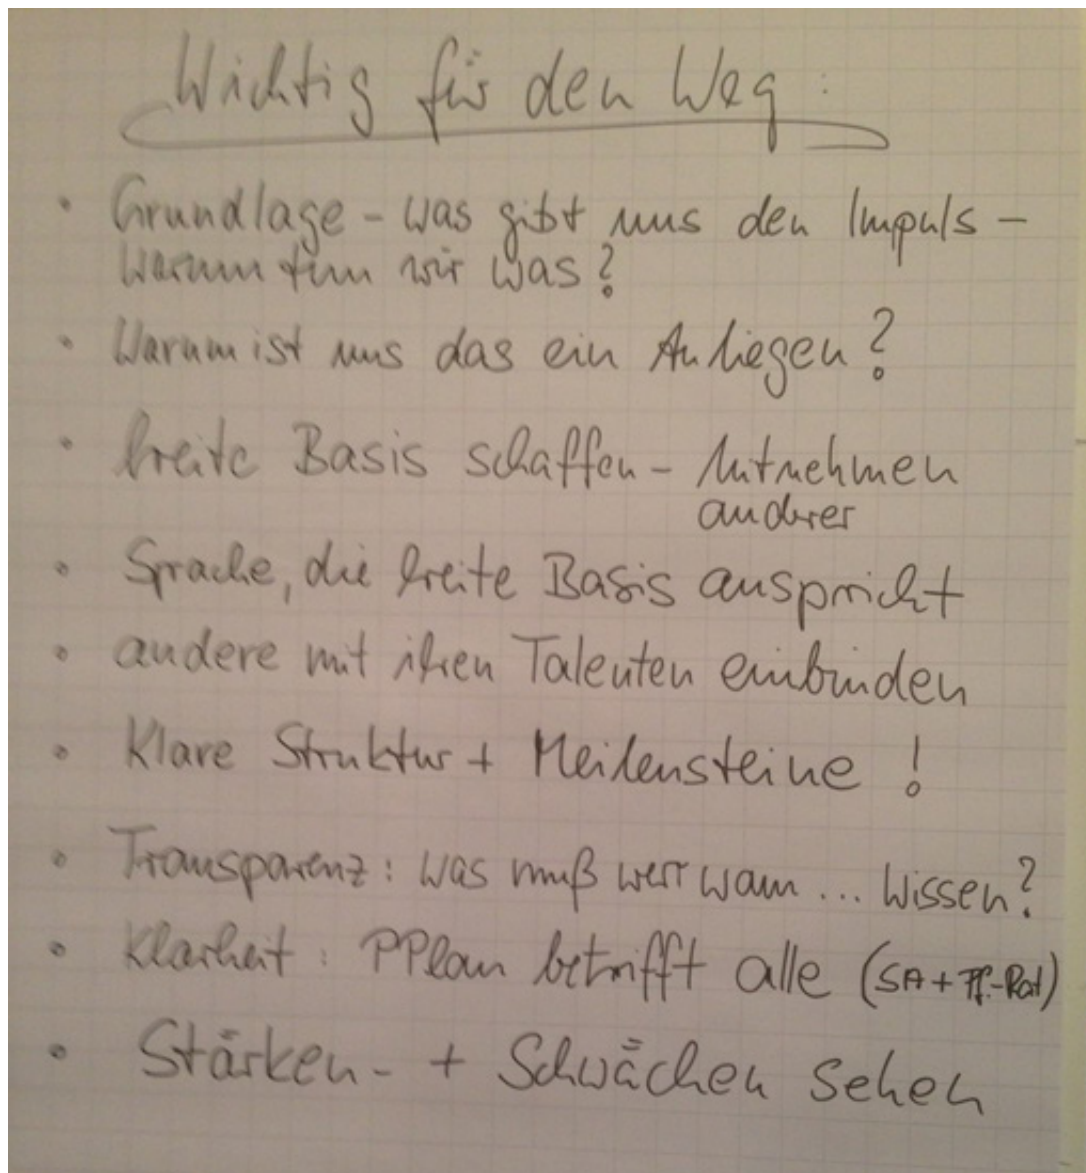 Wichtig für den Weg:
• Grundlage - was gibt uns den Impuls -
warum tun wir was?
• Warum ist uns das ein Anliegen?
• breite Basis schaffen - Mitnehmen
anderer
• Sprache, die breite Basis anspricht
• andere mit ihren Talenten einbinden
• Klare Struktur + Meilensteine!
• Transparenz: was muß wer wann ... wissen?
• Klarheit: PPlan betrifft alle (SA + Pf.-Rat)
• Stärken- + Schwächen sehen